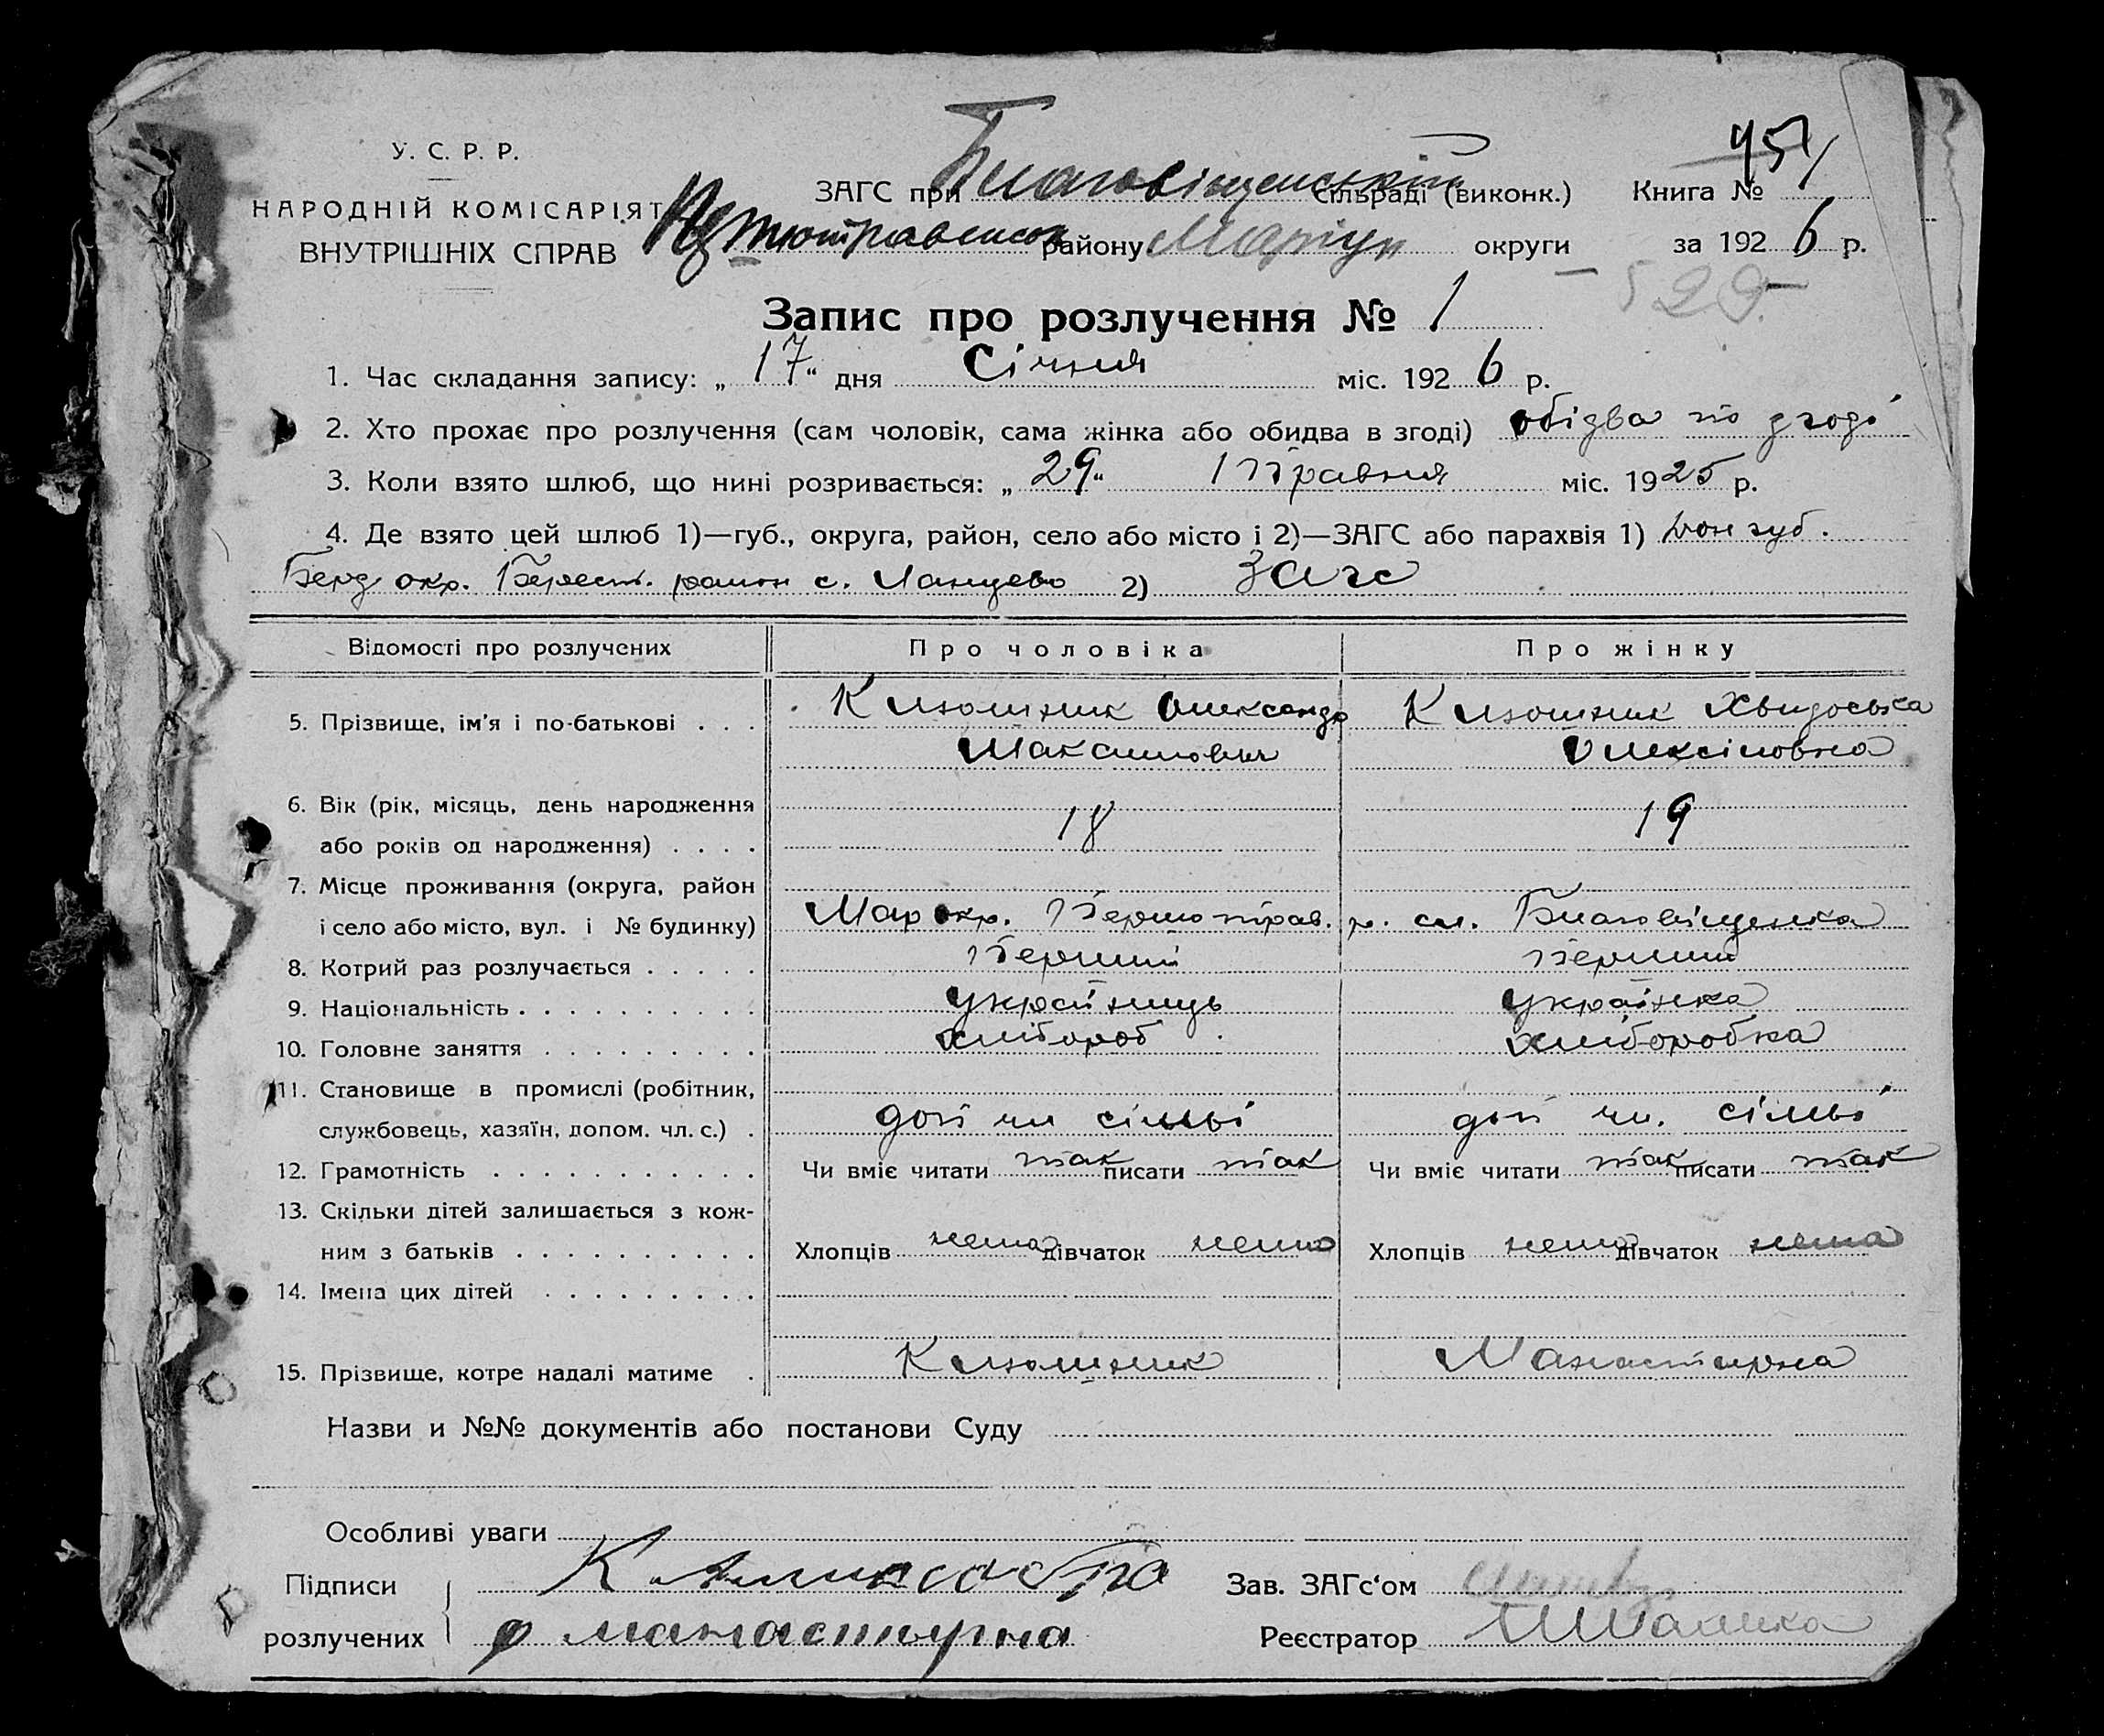 У. С. Р. Р.
НАРОДНІЙ КОМІСАРІЯТ
ВНУТРІШНІХ СПРАВ
ЗАГС при Благовіщенській сільраді (виконк.) Книга № 451
району Маріуп округи за 1926 р.
529
Запис про розлучення № 1
1. Час складання запису: „17“ дня Січня міс. 1926 р.
2. Хто прохає про розлучення (сам чоловік, сама жінка або обидва в згоді) обідва по згоді
3. Коли взято шлюб, що нині розривається: „29“ Травня міс. 1925 р.
4. Де взято цей шлюб 1)—губ., округа, район, село або місто і 2)—ЗАГС або парахвія 1) Дон губ.
Берд окр. Берест. район с. Ланцево 2) Загс
Відомості про розлучених Про чоловіка Про жінку
5. Прізвище, ім'я і по-батькові . . . Клюшник Олександр Клюшник Хвидоська
Максимович Олексіювна
6. Вік (рік, місяць, день народження
або років од народження) . . . . 18 19
7. Місце проживання (округа, район
і село або місто, вул. і № будинку) Мар окр. Першотрав. р. сл. Благовіщенка
8. Котрий раз розлучається . . . . . Перший Перший
9. Національність . . . . . . . . . . Українець Українка
10. Головне заняття . . . . . . . . . хлібороб хліборобка
11. Становище в промислі (робітник,
службовець, хазяїн, допом. чл. с.) . доп чл сімьі доп чл. сімьі
12. Грамотність . . . . . . . . . . . Чи вміє читати так писати так Чи вміє читати так писати так
13. Скільки дітей залишається з кож-
ним з батьків . . . . . . . . . . Хлопців нема дівчаток нема Хлопців нема дівчаток нема
14. Імена цих дітей . . . . . . . . .
15. Прізвище, котре надалі матиме . Клюшник Манастирна
Назви и №№ документів або постанови Суду
Особливі уваги
Підписи Зав. ЗАГс‘ом
розлучених манастырна Реєстратор